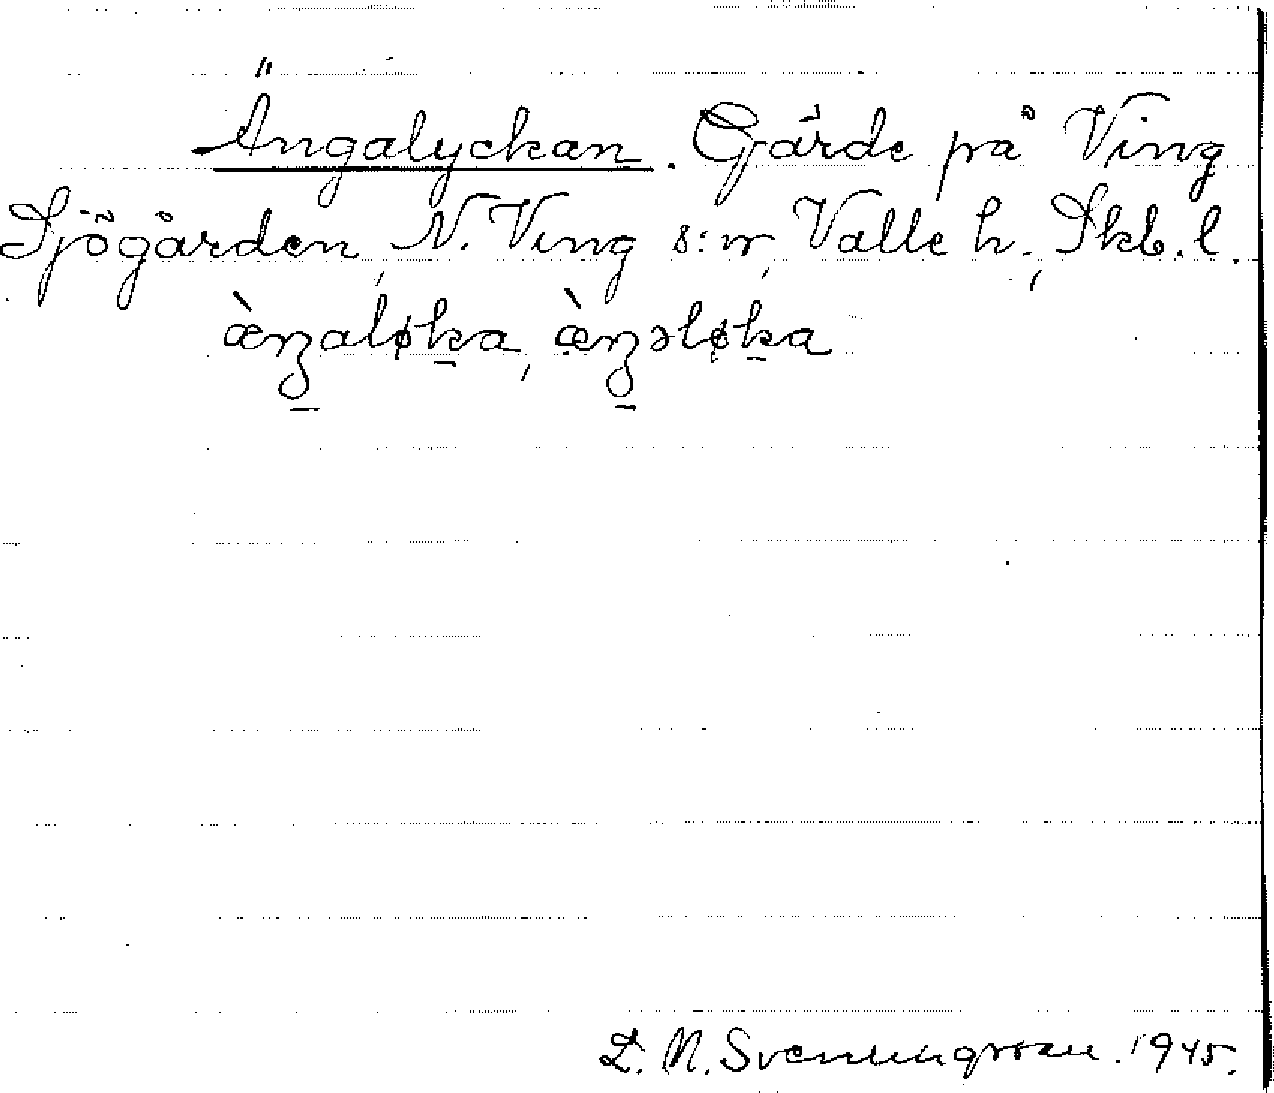 Ängalyckan. Gärde på Ving
Sjögården, N. Ving s:n, Valle h., Skb. l.
æ̀ŋaløka, æ̀ŋəløka
D. N. Svenningsson. 1945.